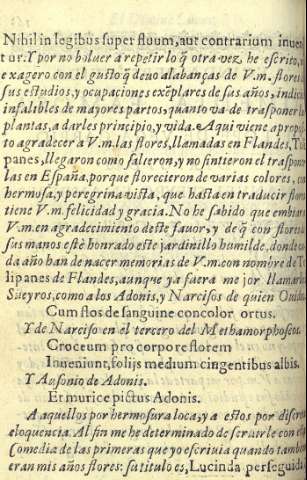 Nihil in legibus superfluum, aut contrarium inuen
tur. Y por no boluer a repetirlo q̃ otra vez, he escrito,
e exagero con el gusto q̃ deuo alabanças de V.m. flores
sus estudios, y ocupaciones exẽplares de sus años, indici
infalibles de mayores partos, quanto va de trasponer l
plantas, a darles principio, y vida. Aqui viene a propo
to agradecer a V.m. las flores, llamadas en Flandes, Tu
panes, llegaron como salieron, y no sintieron el traspon
las en España, porque florecieron de varias colores, con
hermosa, y peregrina vista, que hasta en traducir flore
tiene V.m. felicidad y gracia. No he sabido que embiar
V.m. en agradecimiento deste fauor, y de q̃ con flores
sus manos estè honrado este jardinillo humilde, donde ca
da año han de nacer memorias de V.m. con nombre de T
lipanes de Flandes, aunque ya fuera mejor llamarlos
Sueyros, como a los Adonis, y Narcisos de quien Ouid
Cum flos de sanguine concolor ortus.
Y de Narciso en el tercero del Methamorphoseo
Croceum pro corpore florem
Inueniunt, folijs medium cingentibus albis.
Y Ausonio de Adonis.
Et murice pictus Adonis.
A aquellos por hermosura loca, y a estos por discre
eloquencia. Al fin me he determinado de seruirle con
Comedia de las primeras que yo escriuia quando tambie
eran mis años flores: su titulo es, Lucinda perseguida